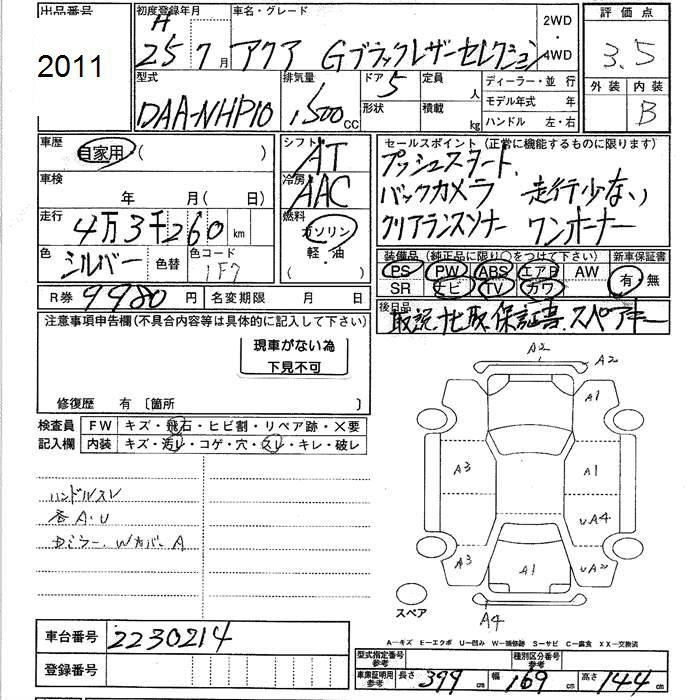 出品番号 初度登録年月 車名・グレード 2WD・4WD 評価点
2011 H 25 7月 アクア Gブラックレザーセレクション 3.5
型式 排気量 ドア 定員 人 ディーラー・並行 外装 内装
DAA-NHP10 1,500CC 5 形状 積載 kg モデル年式 年 B
ハンドル 左・右
車歴 自家用・( ) シフト AT セールスポイント(正常に機能するものに限ります)
プッシュスタート、
車検 年 月( 日) 冷房 AAC バックカメラ 走行少ない
走行 4万3千260km 燃料 ガソリン・軽・油( ) クリアランスソナー ワンオーナー
色 シルバー 色替 色コード 1F7 装備品(純正品に限り○をつけて下さい) 新車保証書
PS PW ABS エアB AW 有・無
SR ナビ TV カワ
R券 9980円 名変期限 月 日 後日品
注意事項申告欄(不具合内容等は具体的に記入して下さい) 取説、ナビ取、保証書、スペアキー
現車がない為
下見不可
修復歴 有〔箇所 〕
検査員 FW キズ・飛石・ヒビ割・リペア跡・×要
記入欄 内装 キズ・汚レ・コゲ・穴・スレ・キレ・破レ
ハンドルスレ
各A・U
Dミラー、Wカバー A
A2 A2
A1
A3 A1
UA4
A3 UA2
A1
スペア
A4
A-キズ E-エクボ U-凹み W-補修跡 S-サビ C-腐食 XX-交換済
車台番号 2230214
型式指定番号 参考 種別区分番号 参考
登録番号 車庫証明用 参考 長さ 399cm 幅 169cm 高さ 144cm